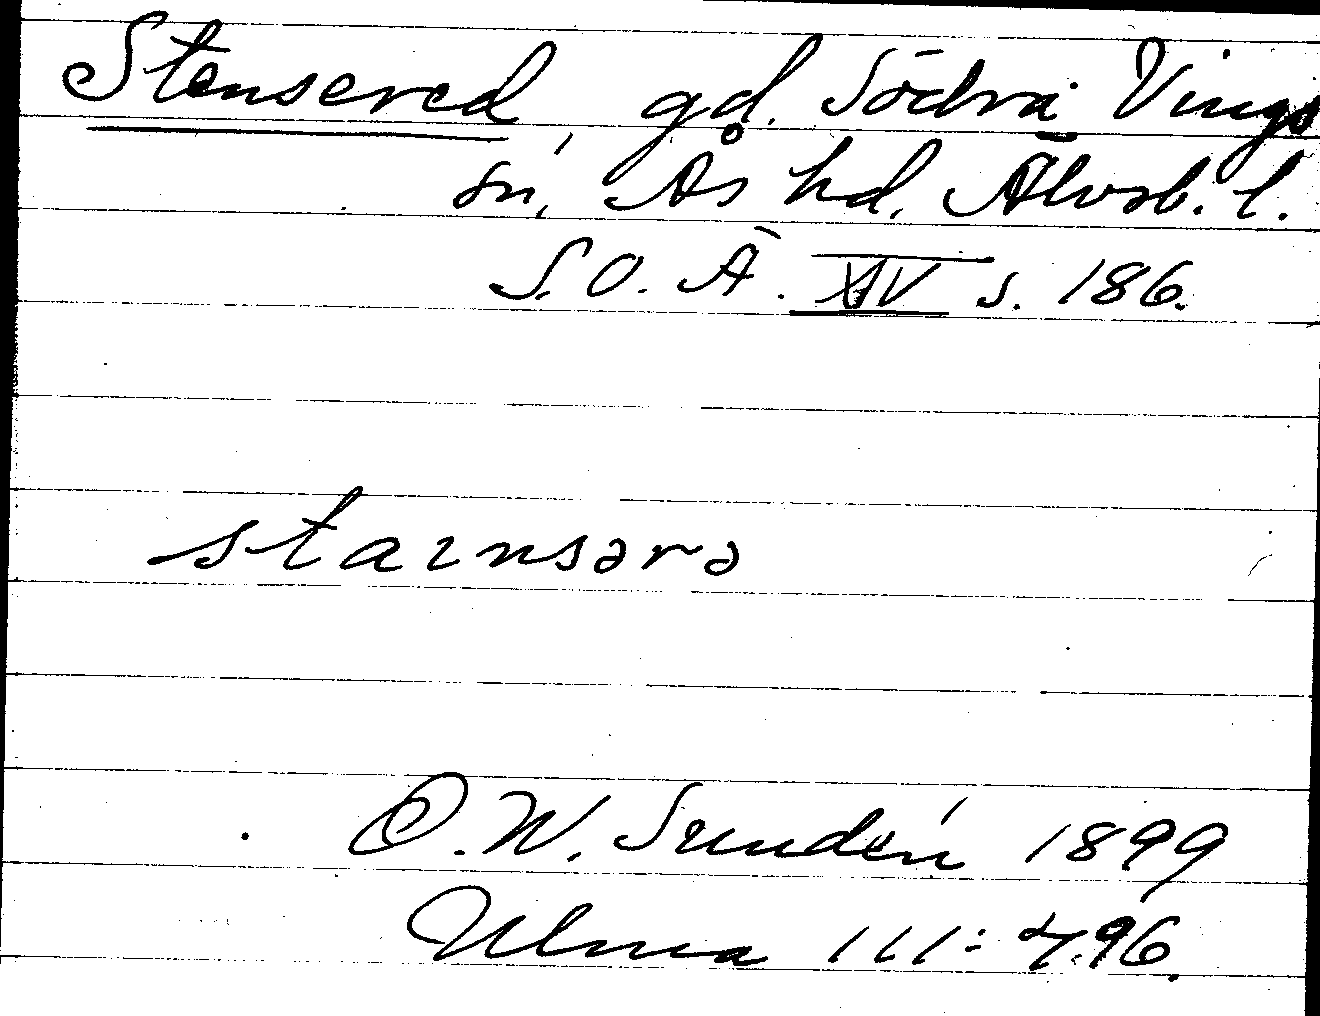 Stensered, gd. Södra Vings
sn, Ås hd. Älvsb. l.
S.O.Ä. XIV s. 186.
staɪnsərə
D. W. Sundén 1899
Ulma 111:496.